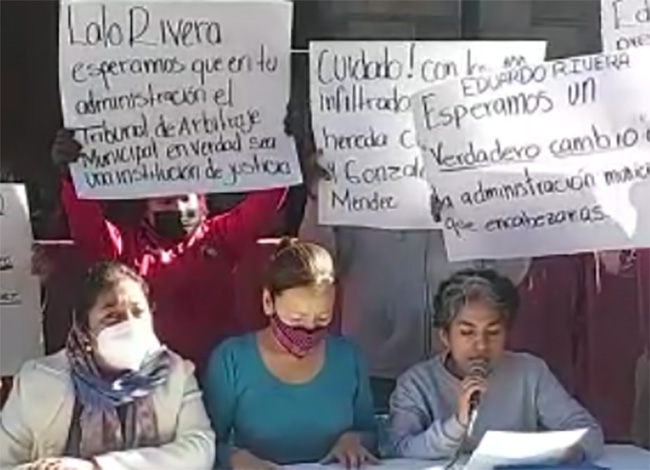 Lalo Rivera
esperamos que en tu
administración el
Tribunal de Arbitraje
Municipal en verdad sea
una institución de justicia
Cuidado! con
infiltrado
hereda
y Gonzal
Mendec
EDUARDO RIVERA
Esperamos un
Verdadero cambio
la administración munici
que encabezarás